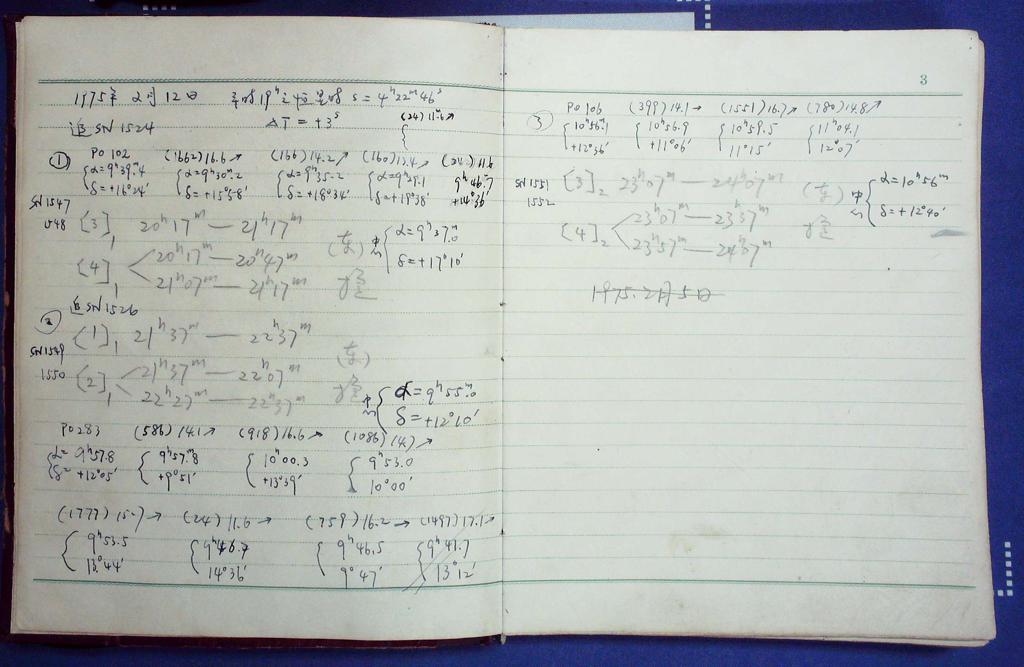 1975年 2月12日 19ʰ s = 4ʰ22ᵐ46ˢ
追 SN 1524 ΔT = +3ˢ (24) 11.6↗
① PO 102 (1662) 16.6↗ (166) 14.2↗ (160) 13.4↗ (24) 11.6
α=9ʰ39ᵐ.4 α=9ʰ30ᵐ.2 α=9ʰ35.2 α=9ʰ29.1 9ʰ46.7
δ=+16°24′ δ=+15°58′ δ=+18°34′ δ=+19°38′ +14°36′
SN 1547
1548 [3]₁ 20ʰ17ᵐ — 21ʰ17ᵐ (东) 中心 α=9ʰ37ᵐ.0
δ=+17°10′
[4]₁ 20ʰ17ᵐ — 20ʰ47ᵐ
21ʰ07ᵐ — 21ʰ17ᵐ
② 追 SN 1526
[1]₁ 21ʰ37ᵐ — 22ʰ37ᵐ
SN 1549
1550 [2]₁ 21ʰ37ᵐ — 22ʰ07ᵐ (东)
22ʰ27ᵐ — 22ʰ37ᵐ
中心 α=9ʰ55ᵐ.0
δ=+12°10′
PO 283 (586) 14.1↗ (918) 16.6↗ (1086) 14.)↗
α=9ʰ57.8 9ʰ57ᵐ.8 10ʰ00.3 9ʰ53.0
δ=+12°05′ +9°51′ +13°39′ 10°00′
(1777) 15.7↗ (24) 11.6→ (759) 16.2→ (1497) 17.1→
9ʰ53.5 9ʰ46.7 9ʰ46.5 9ʰ41.7
13°44′ 14°36′ 9°47′ 13°12′
3
③ PO 106 (399) 14.1→ (1551) 16.7↗ (780) 14.8↗
10ʰ56ᵐ.1 10ʰ56.9 10ʰ59.5 11ʰ04.1
+12°36′ +11°06′ 11°15′ 12°07′
SN 1551
1552 [3]₂ 23ʰ07ᵐ — 24ʰ07ᵐ (东) 中心 α=10ʰ56ᵐ
δ=+12°40′
[4]₂ 23ʰ07ᵐ — 23ʰ37ᵐ
23ʰ57ᵐ — 24ʰ07ᵐ
1975.2月5日